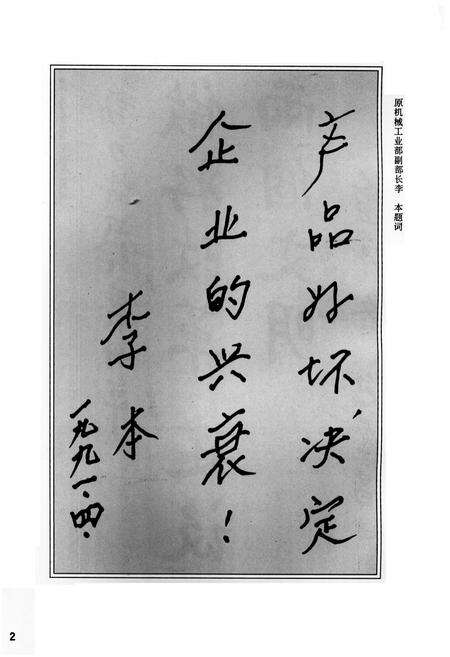 原机械工业部副部长李 本题词
产品好坏决定
企业的兴衰！
李本
一九九一.四.
2